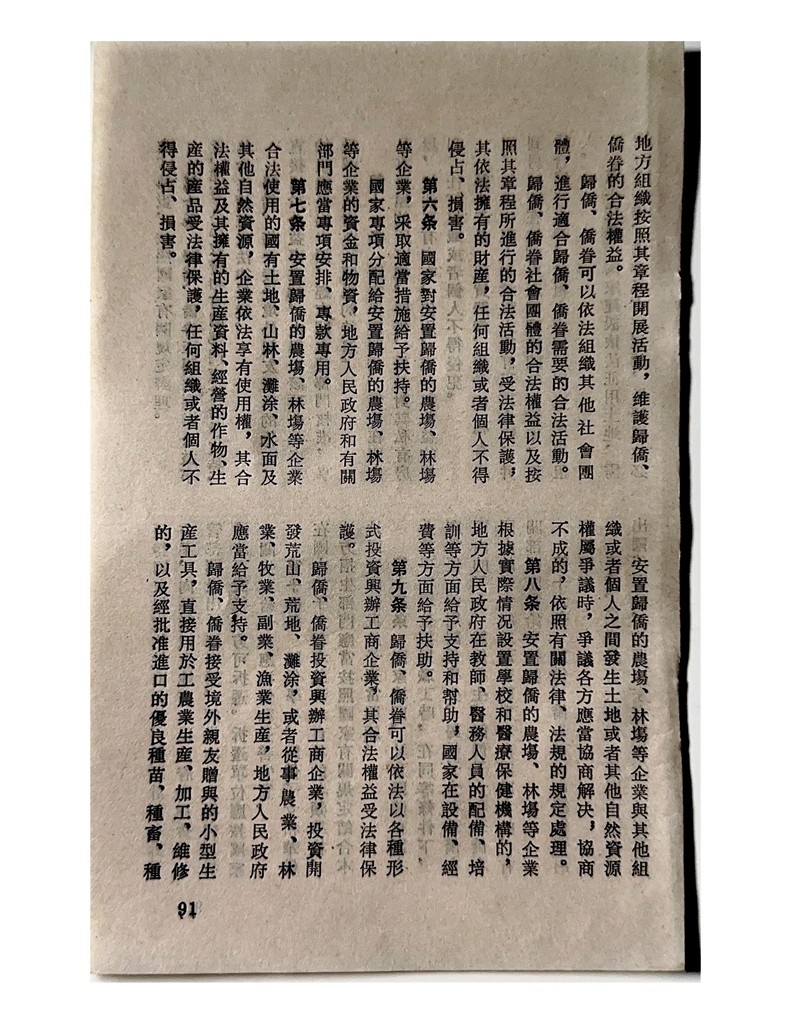 地方組織按照其章程開展活動，維護歸僑、
僑眷的合法權益。
歸僑、僑眷可以依法組織其他社會團
體，進行適合歸僑、僑眷需要的合法活動。
歸僑、僑眷社會團體的合法權益以及按
照其章程所進行的合法活動，受法律保護，
其依法擁有的財産，任何組織或者個人不得
侵占、損害。
第六条　國家對安置歸僑的農塲、林塲
等企業，采取適當措施給予扶持。
國家專項分配給安置歸僑的農塲、林塲
等企業的資金和物資，地方人民政府和有關
部門應當專項安排、專款專用。
第七条　安置歸僑的農塲、林塲等企業
合法使用的國有土地、山林、灘涂、水面及
其他自然資源，企業依法享有使用權，其合
法權益及其擁有的生産資料、經營的作物、生
産的産品受法律保護，任何組織或者個人不
得侵占、損害。
安置歸僑的農塲、林塲等企業與其他組
織或者個人之間發生土地或者其他自然資源
權屬爭議時，爭議各方應當協商解决，協商
不成的，依照有關法律、法規的規定處理。
第八条　安置歸僑的農塲、林塲等企業
根據實際情况設置學校和醫療保健機構的，
地方人民政府在教師、醫務人員的配備、培
訓等方面給予支持和幫助，國家在設備、經
費等方面給予扶助。
第九条　歸僑、僑眷可以依法以各種形
式投資興辦工商企業，其合法權益受法律保
護。
歸僑、僑眷投資興辦工商企業，投資開
發荒山、荒地、灘涂，或者從事農業、林
業、牧業、副業、漁業生産，地方人民政府
應當給予支持。
歸僑、僑眷接受境外親友贈與的小型生
産工具，直接用於工農業生産、加工、維修
的，以及經批准進口的優良種苗、種畜、種
91